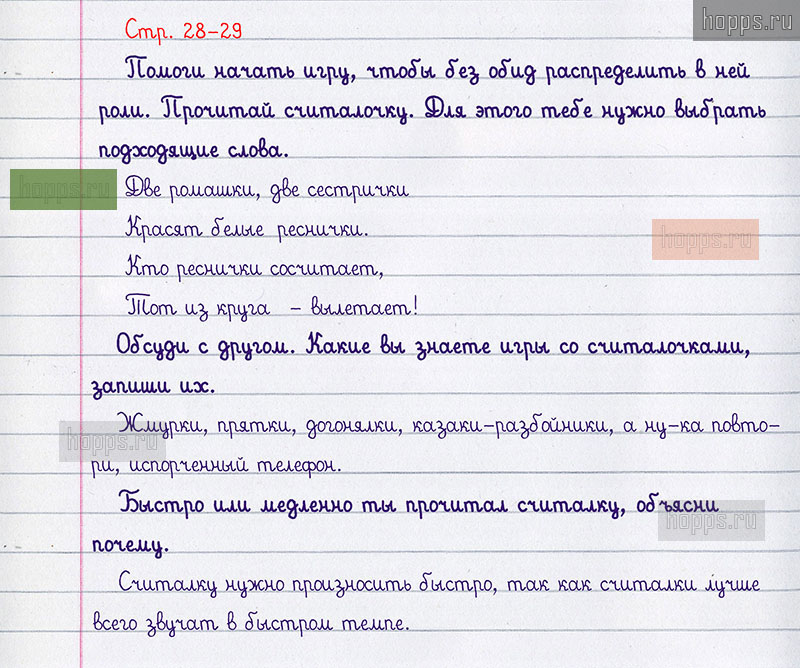 hopps.ru
Стр. 28-29
Помоги начать игру, чтобы без обид распределить в ней
роли. Прочитай считалочку. Для этого тебе нужно выбрать
подходящие слова.
hopps.ru
Две ромашки, две сестрички
Красят белые реснички.
hopps.ru
Кто реснички сосчитает,
Тот из круга - вылетает!
Обсуди с другом. Какие вы знаете игры со считалочками,
запиши их.
Жмурки, прятки, догонялки, казаки-разбойники, а ну-ка повто-
hopps.ru
ри, испорченный телефон.
Быстро или медленно ты прочитал считалку, объясни
hopps.ru
почему.
Считалку нужно произносить быстро, так как считалки лучше
всего звучат в быстром темпе.